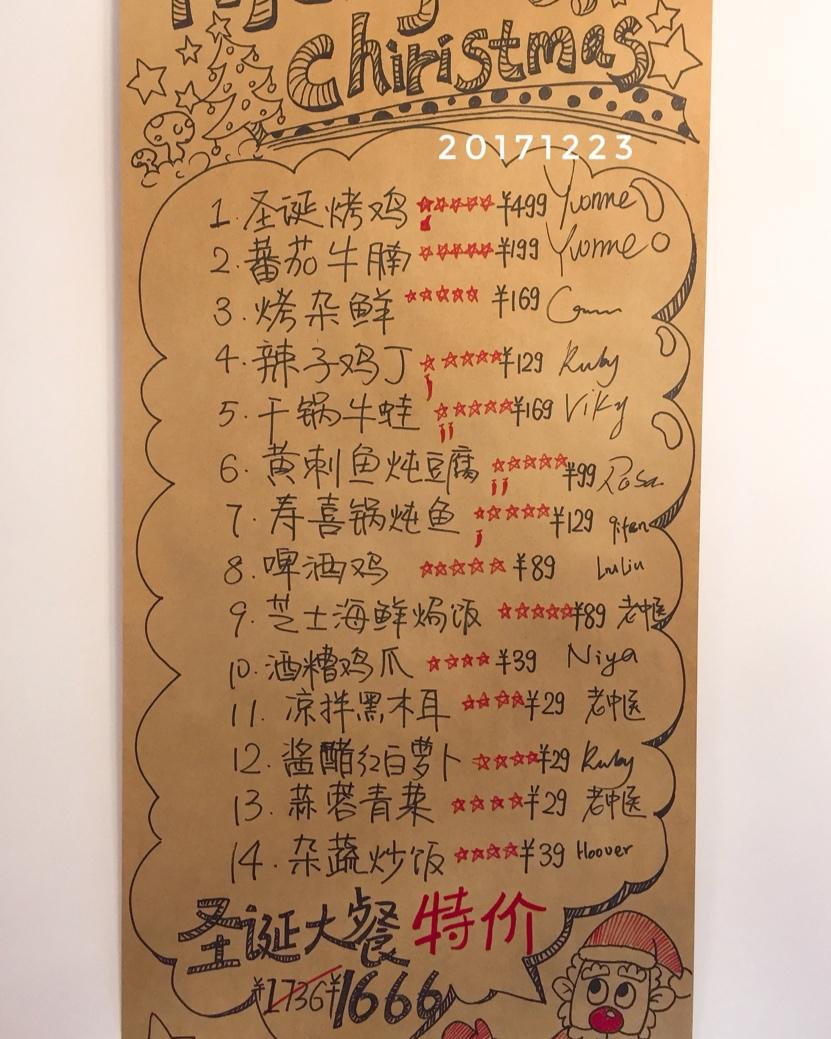 Merry
Chiristmas
20171223
1. 圣诞烤鸡 ☆☆☆☆☆ ¥499 Yvonne
2. 蕃茄牛腩 ☆☆☆☆☆ ¥199 Yvonne
3. 烤杂鲜 ☆☆☆☆☆ ¥169
4. 辣子鸡丁 ☆☆☆☆☆ ¥129 Ruby
5. 干锅牛蛙 ☆☆☆☆☆ ¥169 Viky
6. 黄刺鱼炖豆腐 ☆☆☆☆☆ ¥99 Rosa
7. 寿喜锅炖鱼 ☆☆☆☆☆ ¥129
8. 啤酒鸡 ☆☆☆☆☆ ¥89 LiuLiu
9. 芝士海鲜焗饭 ☆☆☆☆☆ ¥89 老中医
10. 酒糟鸡爪 ☆☆☆☆ ¥39 Niya
11. 凉拌黑木耳 ☆☆☆☆ ¥29 老中医
12. 酱醋红白萝卜 ☆☆☆☆ ¥29 Ruby
13. 蒜蓉青菜 ☆☆☆☆ ¥29 老中医
14. 杂蔬炒饭 ☆☆☆☆ ¥39 Hoover
圣诞大餐特价
¥1736 ¥1666